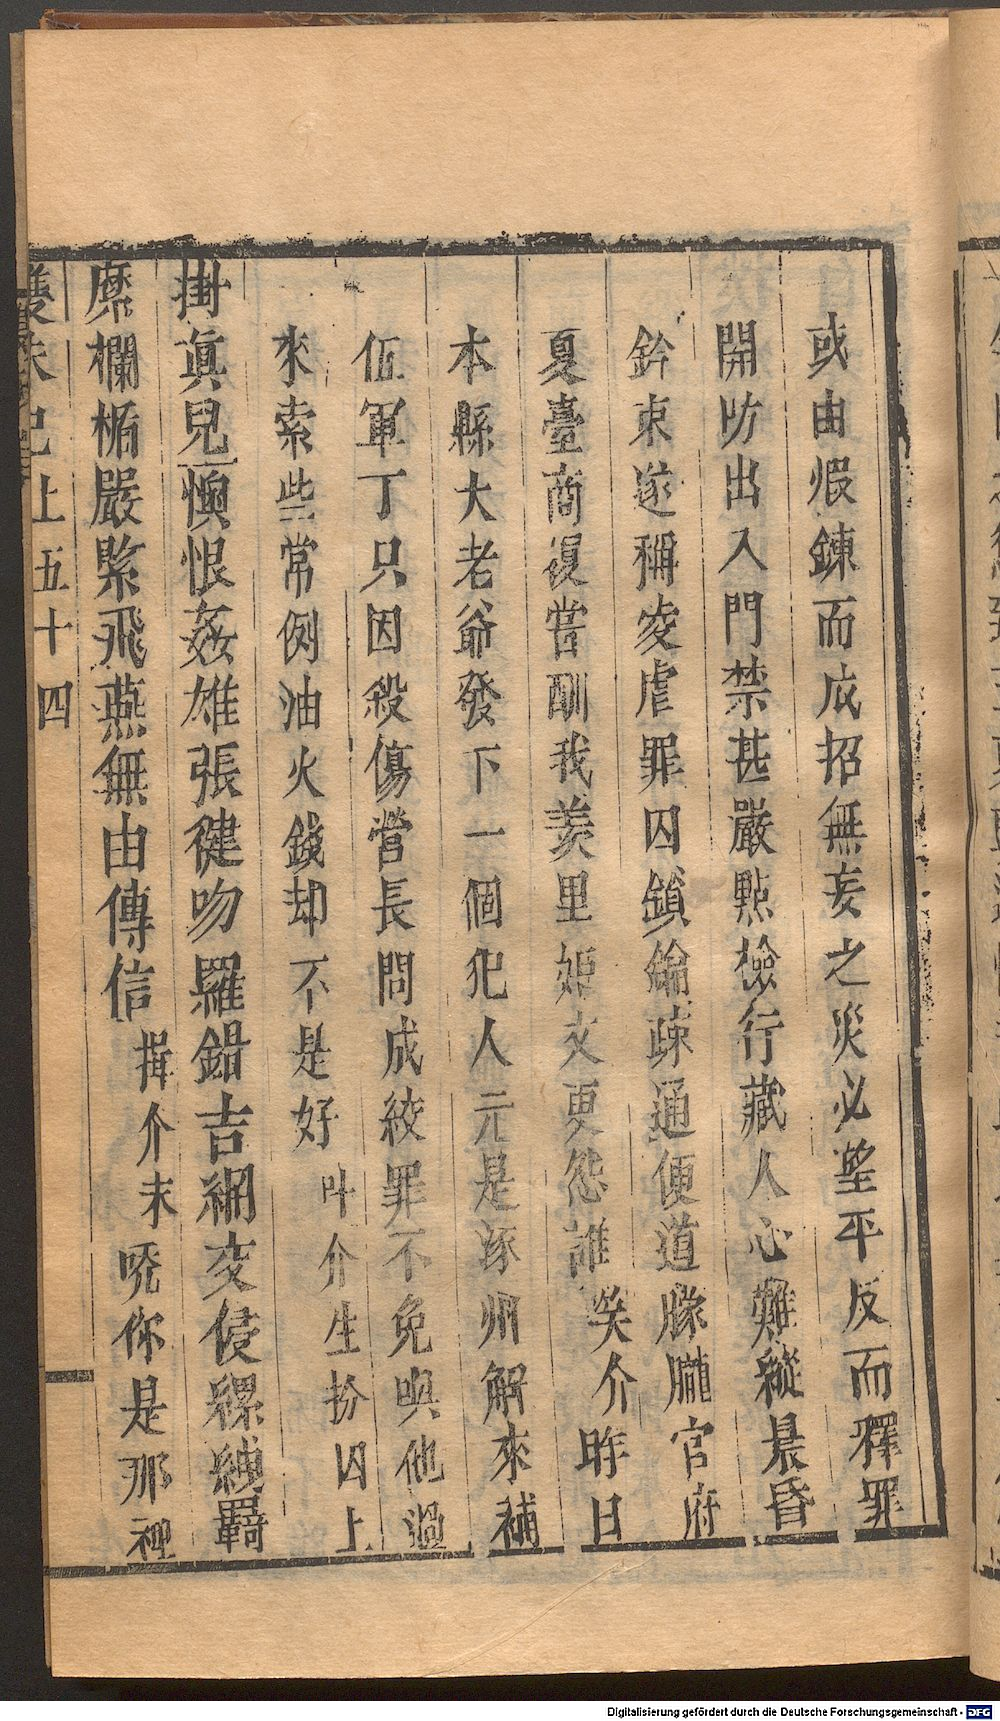 或由煆鍊而成招無妄之災必望平反而釋罪
開防出入門禁甚嚴點檢行藏人心難縱晨昏
鈐束遂稱凌虐罪囚鎖鑰疎通便道朦朧官府
夏臺商湯嘗酬我羑里姬文更怨誰 笑介 昨日
本縣大老爺發下一個犯人元是涿州解來補
伍軍丁只因殺傷營長問成絞罪不免與他過
來索些常例油火錢却不是好 叶介生扮囚上
掛真兒 懊恨姦雄張健吻羅鉗吉網交侵縲絏羈
縻欄楯嚴緊飛燕無由傳信 揖介末 唗你是那裡
雙珠記上 五十四
Digitalisierung gefördert durch die Deutsche Forschungsgemeinschaft - DFG